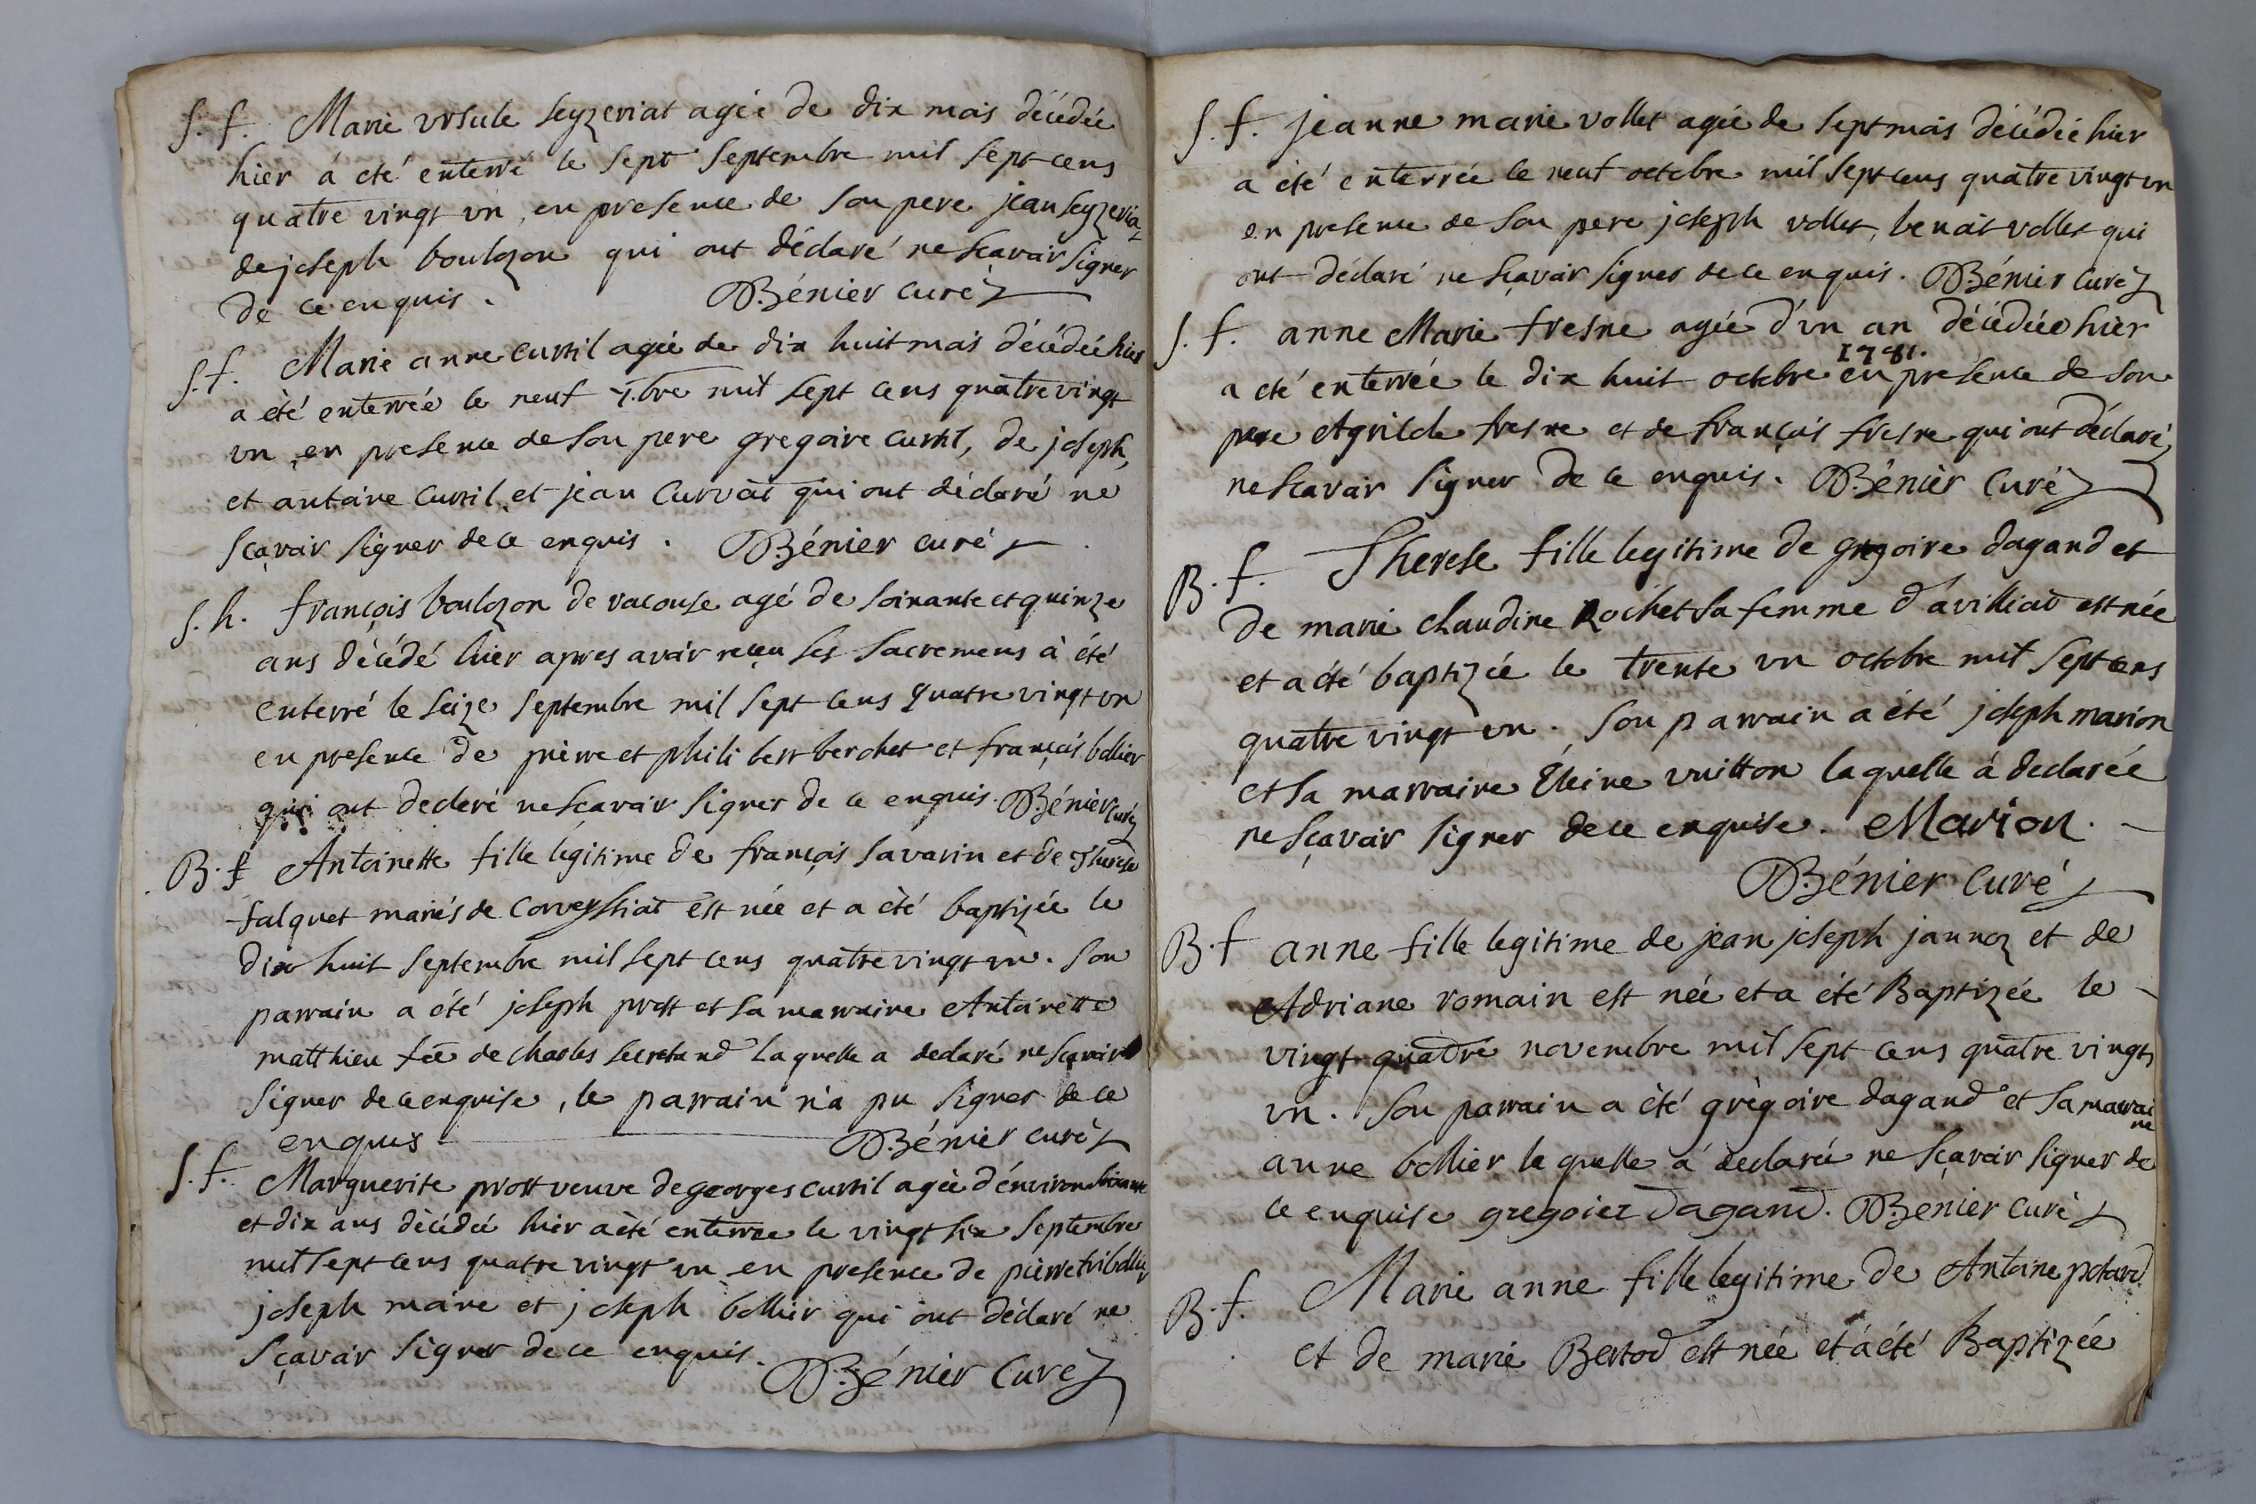 S. f. Marie ursule seyzeriat agée de dix mois décédée
hier á eté enterré le sept septembre mil sept cens
quatre vingt un, en presence de son pere jean seyzeriat
de joseph boulozon qui ont déclaré ne scavoir signer
de ce enquis. Bénier curé
S. f. Marie anne curtil agée de dix huit mois décédée hier
a été enterrée le neuf 7.bre mil sept cens quatre vingt
un, en presence de son pere gregoire curtil, de joseph,
et antoine curtil, et jean curvat qui ont déclaré ne
sçavoir signer de ce enquis. Bénier curé
S. h. françois boulozon de vacouse agé de soixante et quinze
ans décédé hier apres avoir reçu ses sacremens à été
enterré le seize septembre mil sept cens quatre vingt un
en presence de pierre et philibert berchet et françois bollier
qui ont decleré ne scavoir signer de ce enquis. Bénier curé
B. f Antoinette fille legitime de françois savarin et de Therese
falquet mariés de Corveyssiat est née et a été baptizée le
dix huit septembre mil sept cens quatre vingt un. son
parrain a été joseph prost et sa marraine Antoinette
matthieu fée de charles secretand laquelle a declaré ne sçavoir
signer de ce enquise, le parrain n'a pu signer de ce
enquis Bénier curé
S. f. Marguerite prost veuve de georges curtil agée d'environ soixante
et dix ans dècédée hier a èté enterrée le vingt six septembre
mil sept cens quatre vingt un en presence de pierre tribollier
joseph maire et joseph bollier qui ont déclaré ne
sçavoir signer de ce enquis.
Bénier Curé
S. f. jeanne marie vollet agée de sept mois décédée hier
a été enterrée le neuf octobre mil sept cens quatre vingt un
en presence de son pere joseph vollet, benoit vollet qui
ont déclaré ne sçavoir signer de ce enquis. Bénier Curé
S. f. anne Marie fresne agée d'un an décédée hier
1781.
a eté enterrée le dix huit octobre en présence de son
pere fresne et de françois fresne qui ont déclaré
ne scavoir signer de ce enquis. Bénier Curé
B. f. Therese fille legitime de gregoire dagand et
de marie claudine Rochet sa femme d'avilliat est née
et a été baptizée le trente un octobre mil sept cens
quatre vingt un. Son parrain a été joseph marion
et sa marraine vuitton laquelle á declarée
ne sçavoir signer de ce enquise. Marion.
Bénier Curé
B. f anne fille legitime de jean joseph jannoz et de
Adriane romain est née et a été Baptizée le
vingt quatre novembre mil sept cens quatre vingt
un. son parrain a èté grègoire dagand et sa marrai
ne
anne bollier laquelle a declaré ne sçavoir signer de
ce enquise gregoiez dagand. Bénier curé
B. f. Marie anne fille legitime de Antoine potard
et de marie Bertod est née et a été Baptizée